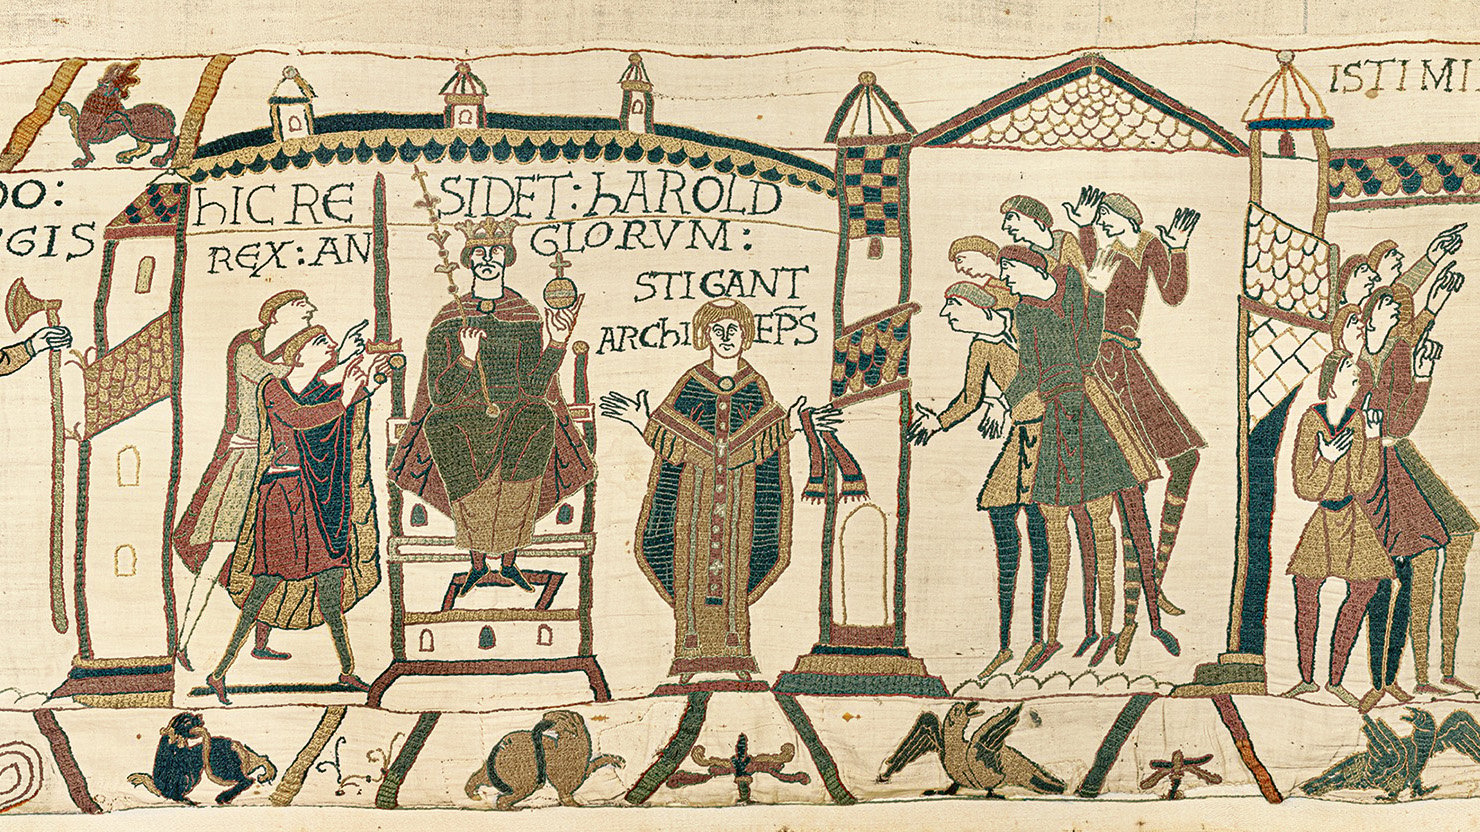 DO:
GIS
hIC RE SIDET: hAROLD
REX: AN GLORVM:
STIGANT
ARChI EP̄S
ISTI MI